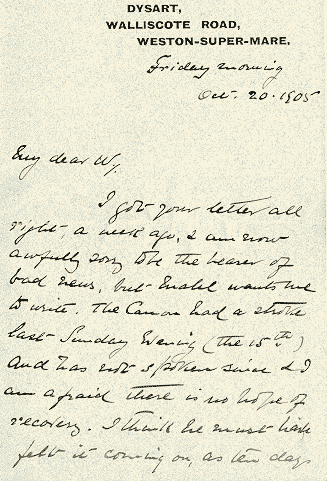 DYSART,
WALLISCOTE ROAD,
WESTON-SUPER-MARE.
Friday morning
Oct. 20. 1905
My dear W.
I got your letter all
right, a week ago, & am now
awfully sorry to be the bearer of
bad news, but wants me
to write. The Canon had a stroke
last Sunday Evening (the 15th)
and has not spoken since & I
am afraid there is no hope of
recovery. I think he must have
felt it coming on, as ten days